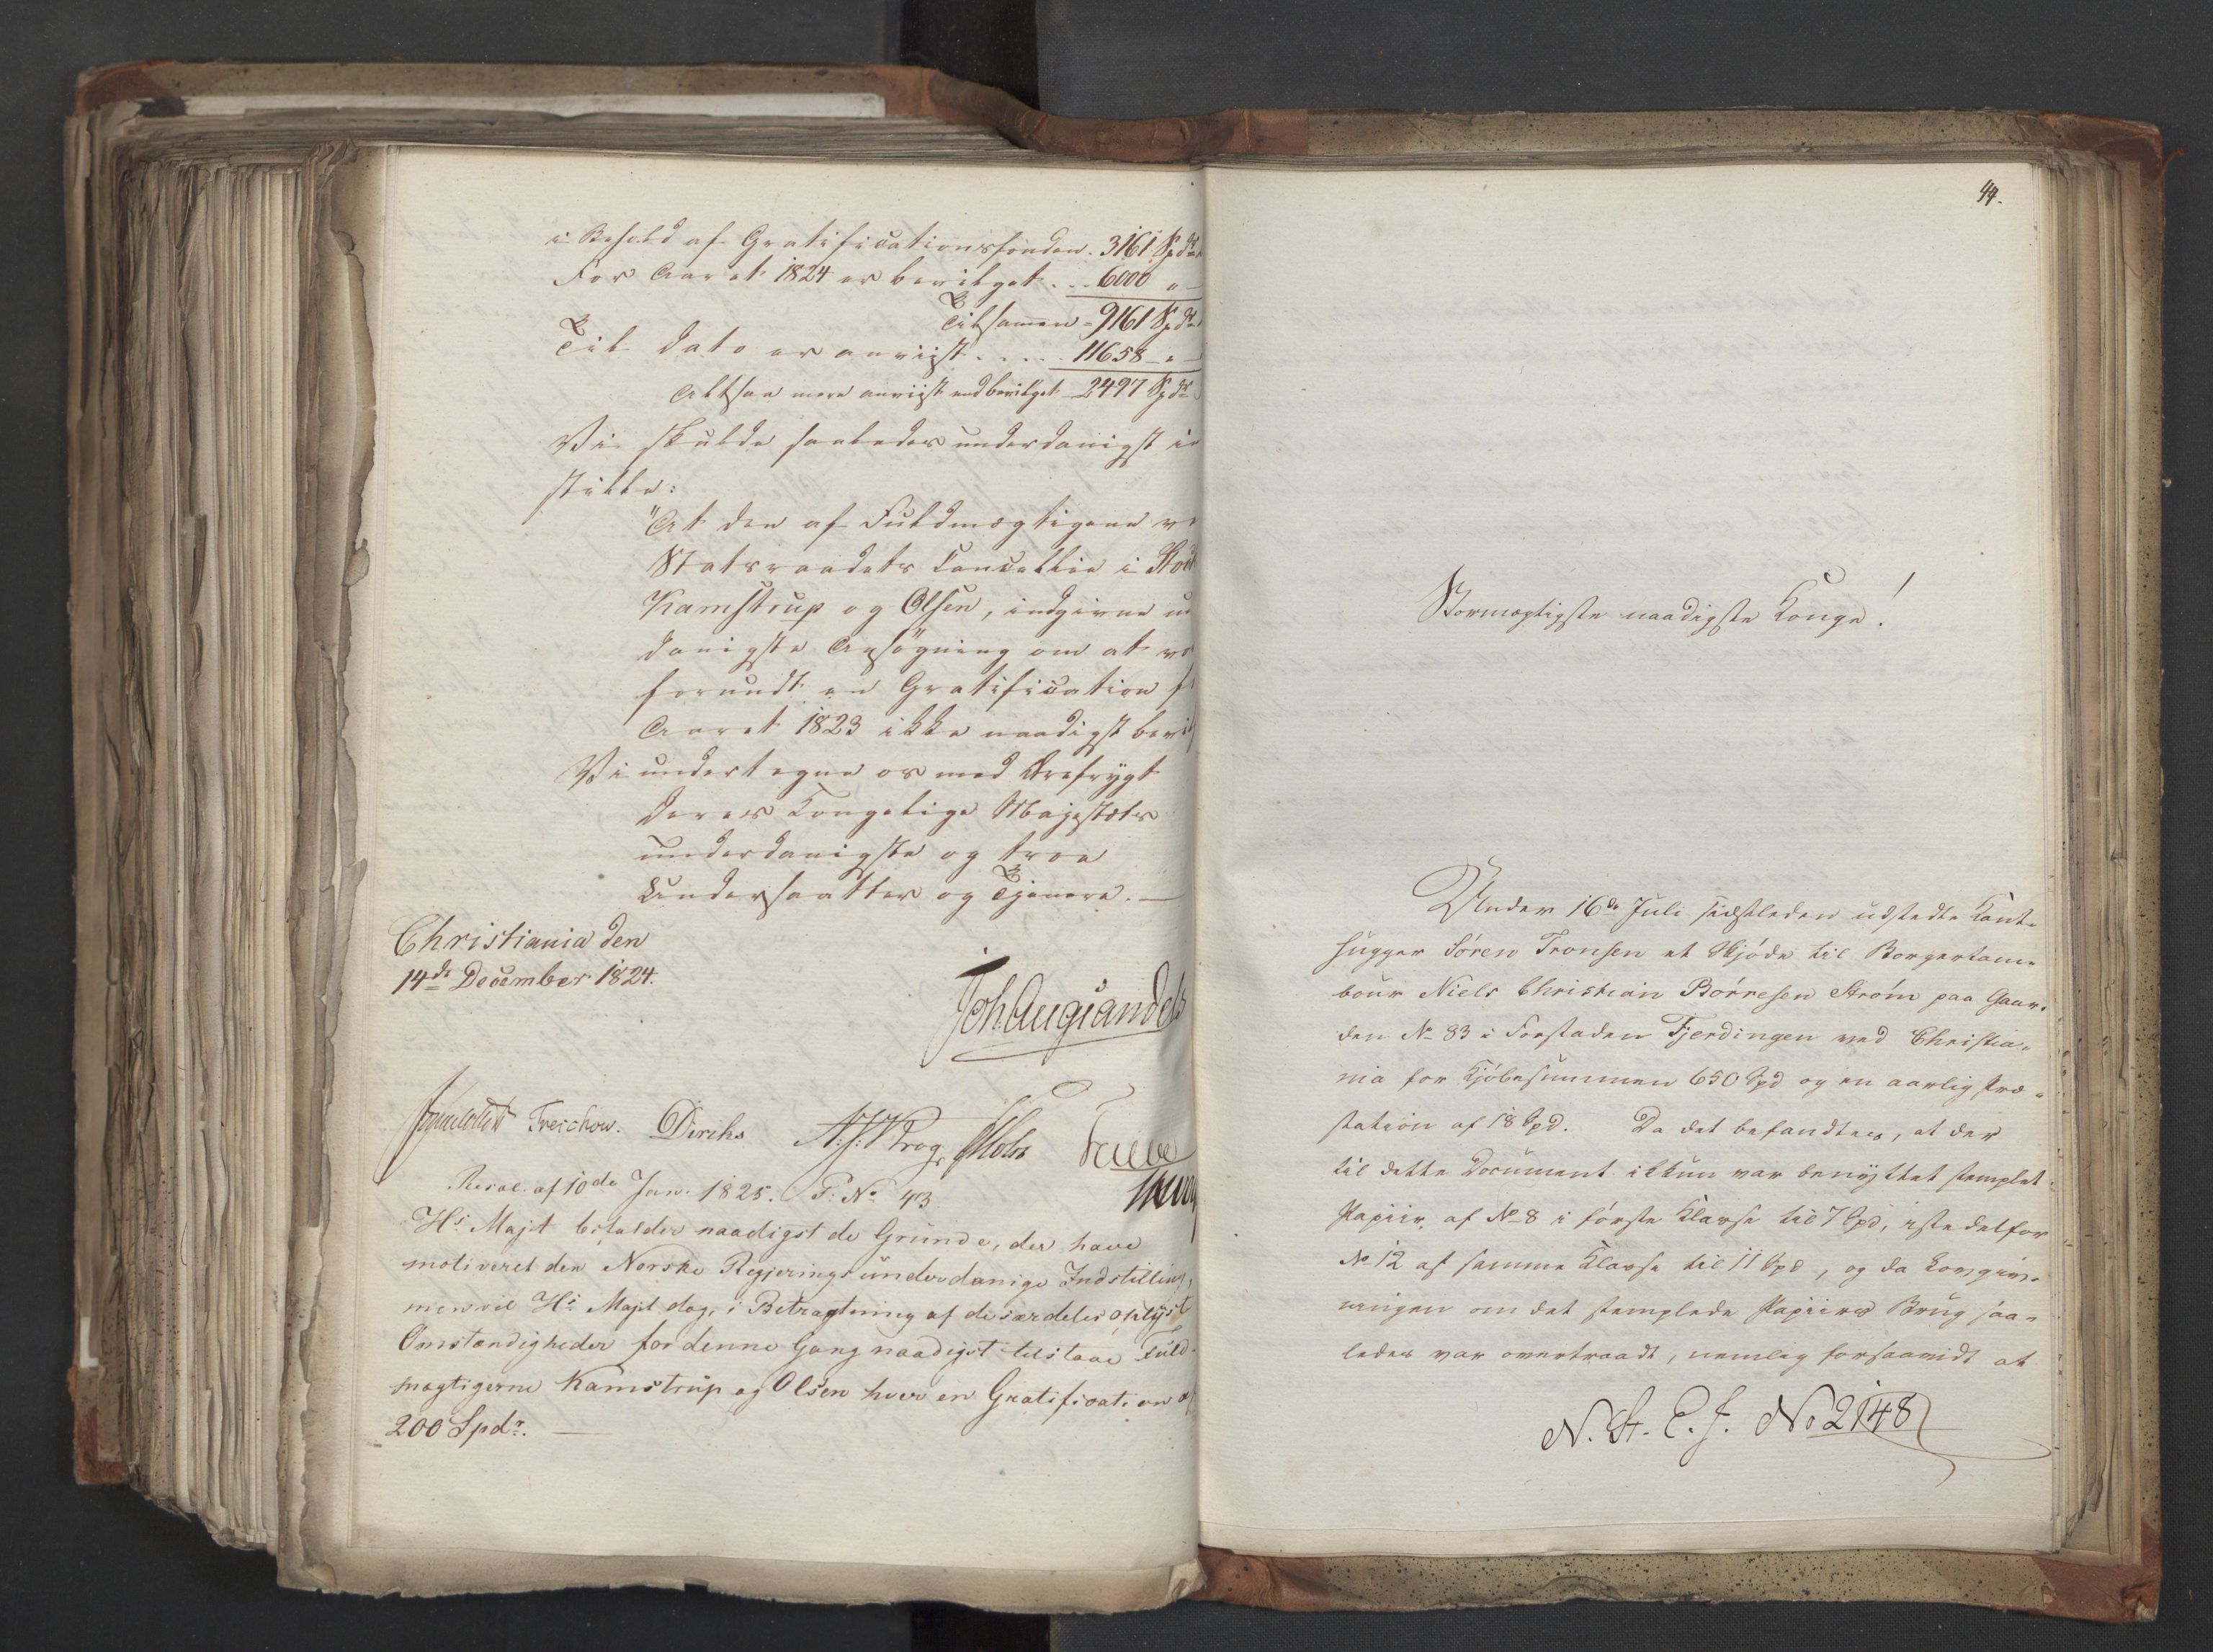 i Behold af Gratificationsfonden. 3161 Spdr
For Aaret 1824 er bevilget . . . 6000 "
Tilsamen - 9161 Spdr
Til Dato er anviist . . . . . 11658 "
Altsaa mere anviist end bevilget 2497 Spdr
Vi skulde saaledes underdanigst in
stille:
"At den af Fuldmægtigene ve
Statsraadets Cancellie i Stock
Kamstrup og Olsen, indgivne un
danigste Ansögning om at vo
forundt en Gratification f
Aaret 1823 ikke naadigst bevil
Vi undertegne os med Ærefrygt
Deres Kongelige Majestæts
underdanigste og troe
Undersaatter og Tjenere. —
Christiania den
14de December 1824.
Joh. Aug Sandels
Sommerhielm Treschow. Diriks A: J: Krog Holst Fasting
Resol. af 10de Jan. 1825. P: No 43
Hs Majt bifalder naadigst de Grunde, der have
motiveret den Norske Regjerings underdanige Indstilling,
men vil Hs Majt dog, i Betragtning af de særdeles oplyste
Omstændigheder for denne Gang naadigst tilstaae Fuld-
mægtigerne Kamstrup og Olsen hver en Gratification af
200 Spdr. —
44.
Stormægtigste naadigste Konge!
Under 16de Juli sidstleden udstedte Kant-
hugger Sören Tronsen et Skjöde til Borgertam-
bour Niels Christian Börresen Ström paa Gaar-
den No 83 i Forstaden Fjerdingen ved Christia-
nia for Kjöbesummen 650 Spd og en aarlig Præ-
station af 18 Spd. Da det befandtes, at der
til dette Document ikkun var benyttet stemplet
Papiir af No 8 i förste Klasse til 7 Spd, istedetfor
No 12 af samme Klasse til 11 Spd, og da Lovgiv-
ningen om det stemplede Papiirs Brug saa-
ledes var overtraadt, nemlig forsaavidt at
N. St. C. J. No 2148